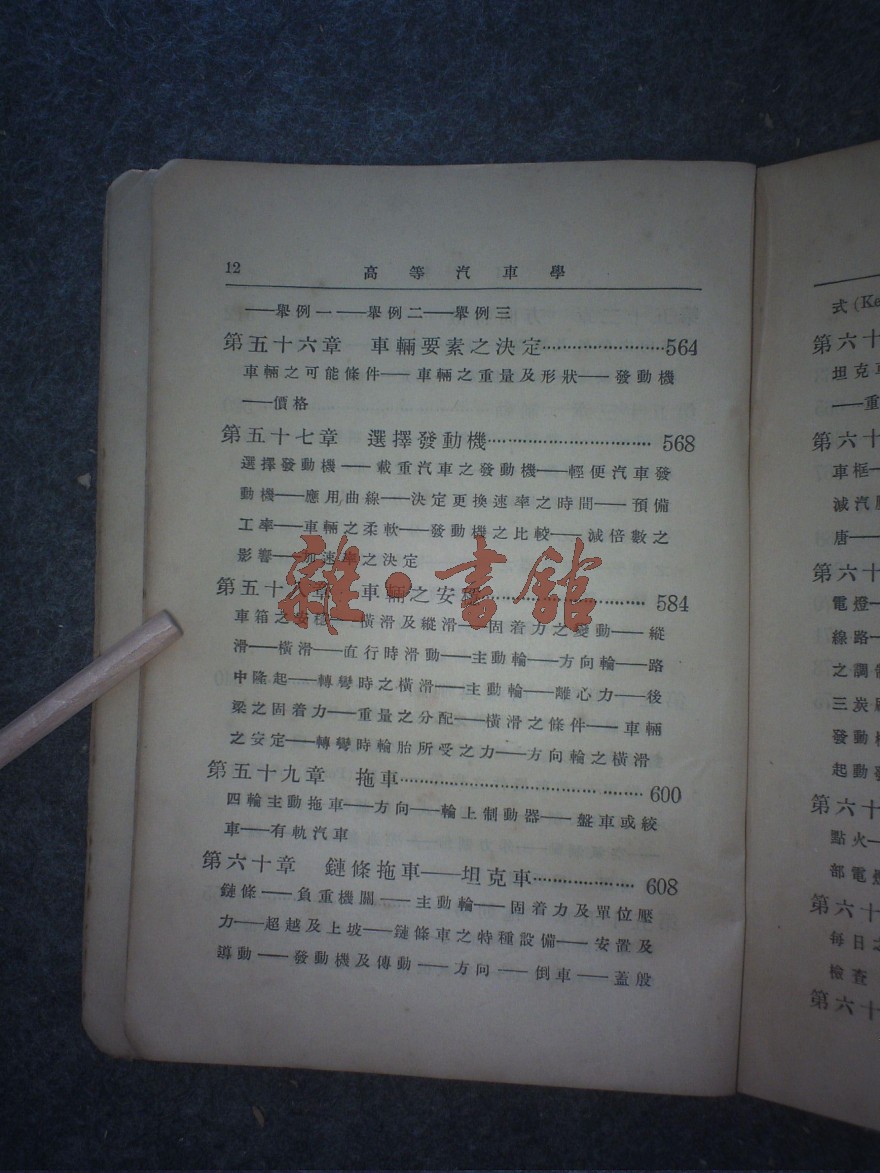 12 高等汽車學
——舉例一——舉例二——舉例三
第五十六章 車輛要素之決定……………………564
車輛之可能條件——車輛之重量及形狀——發動機
——價格
第五十七章 選擇發動機…………………………… 568
選擇發動機——載重汽車之發動機——輕便汽車發
動機——應用曲線——決定更換速率之時間——預備
工率——車輛之柔軟——發動機之比較——減倍數之
影響——加速率之決定
第五十八章 車輛之安定…………………………… 584
車箱之安穩——橫滑及縱滑——固着力之變動——縱
滑——橫滑——直行時滑動——主動輪——方向輪——路
中隆起——轉彎時之橫滑——主動輪——離心力——後
梁之固着力——重量之分配——橫滑之條件——車輛
之安定——轉彎時輪胎所受之力——方向輪之橫滑
第五十九章 拖車……………………………………… 600
四輪主動拖車——方向——輪上制動器——盤車或絞
車——有軌汽車
第六十章 鏈條拖車——坦克車………………… 608
鏈條——負重機關——主動輪——固着力及單位壓
力——超越及上坡——鏈條車之特種設備——安置及
導動——發動機及傳動——方向——倒車——蓋般
雜·書館
式(Ke
第六十
坦克車
——重
第六十
車框—
減汽
唐——
第六十
電燈—
線路—
之調
三炭
發動機
起動發
第六十
點火—
部電燈
第六十
每日之
檢查
第六十